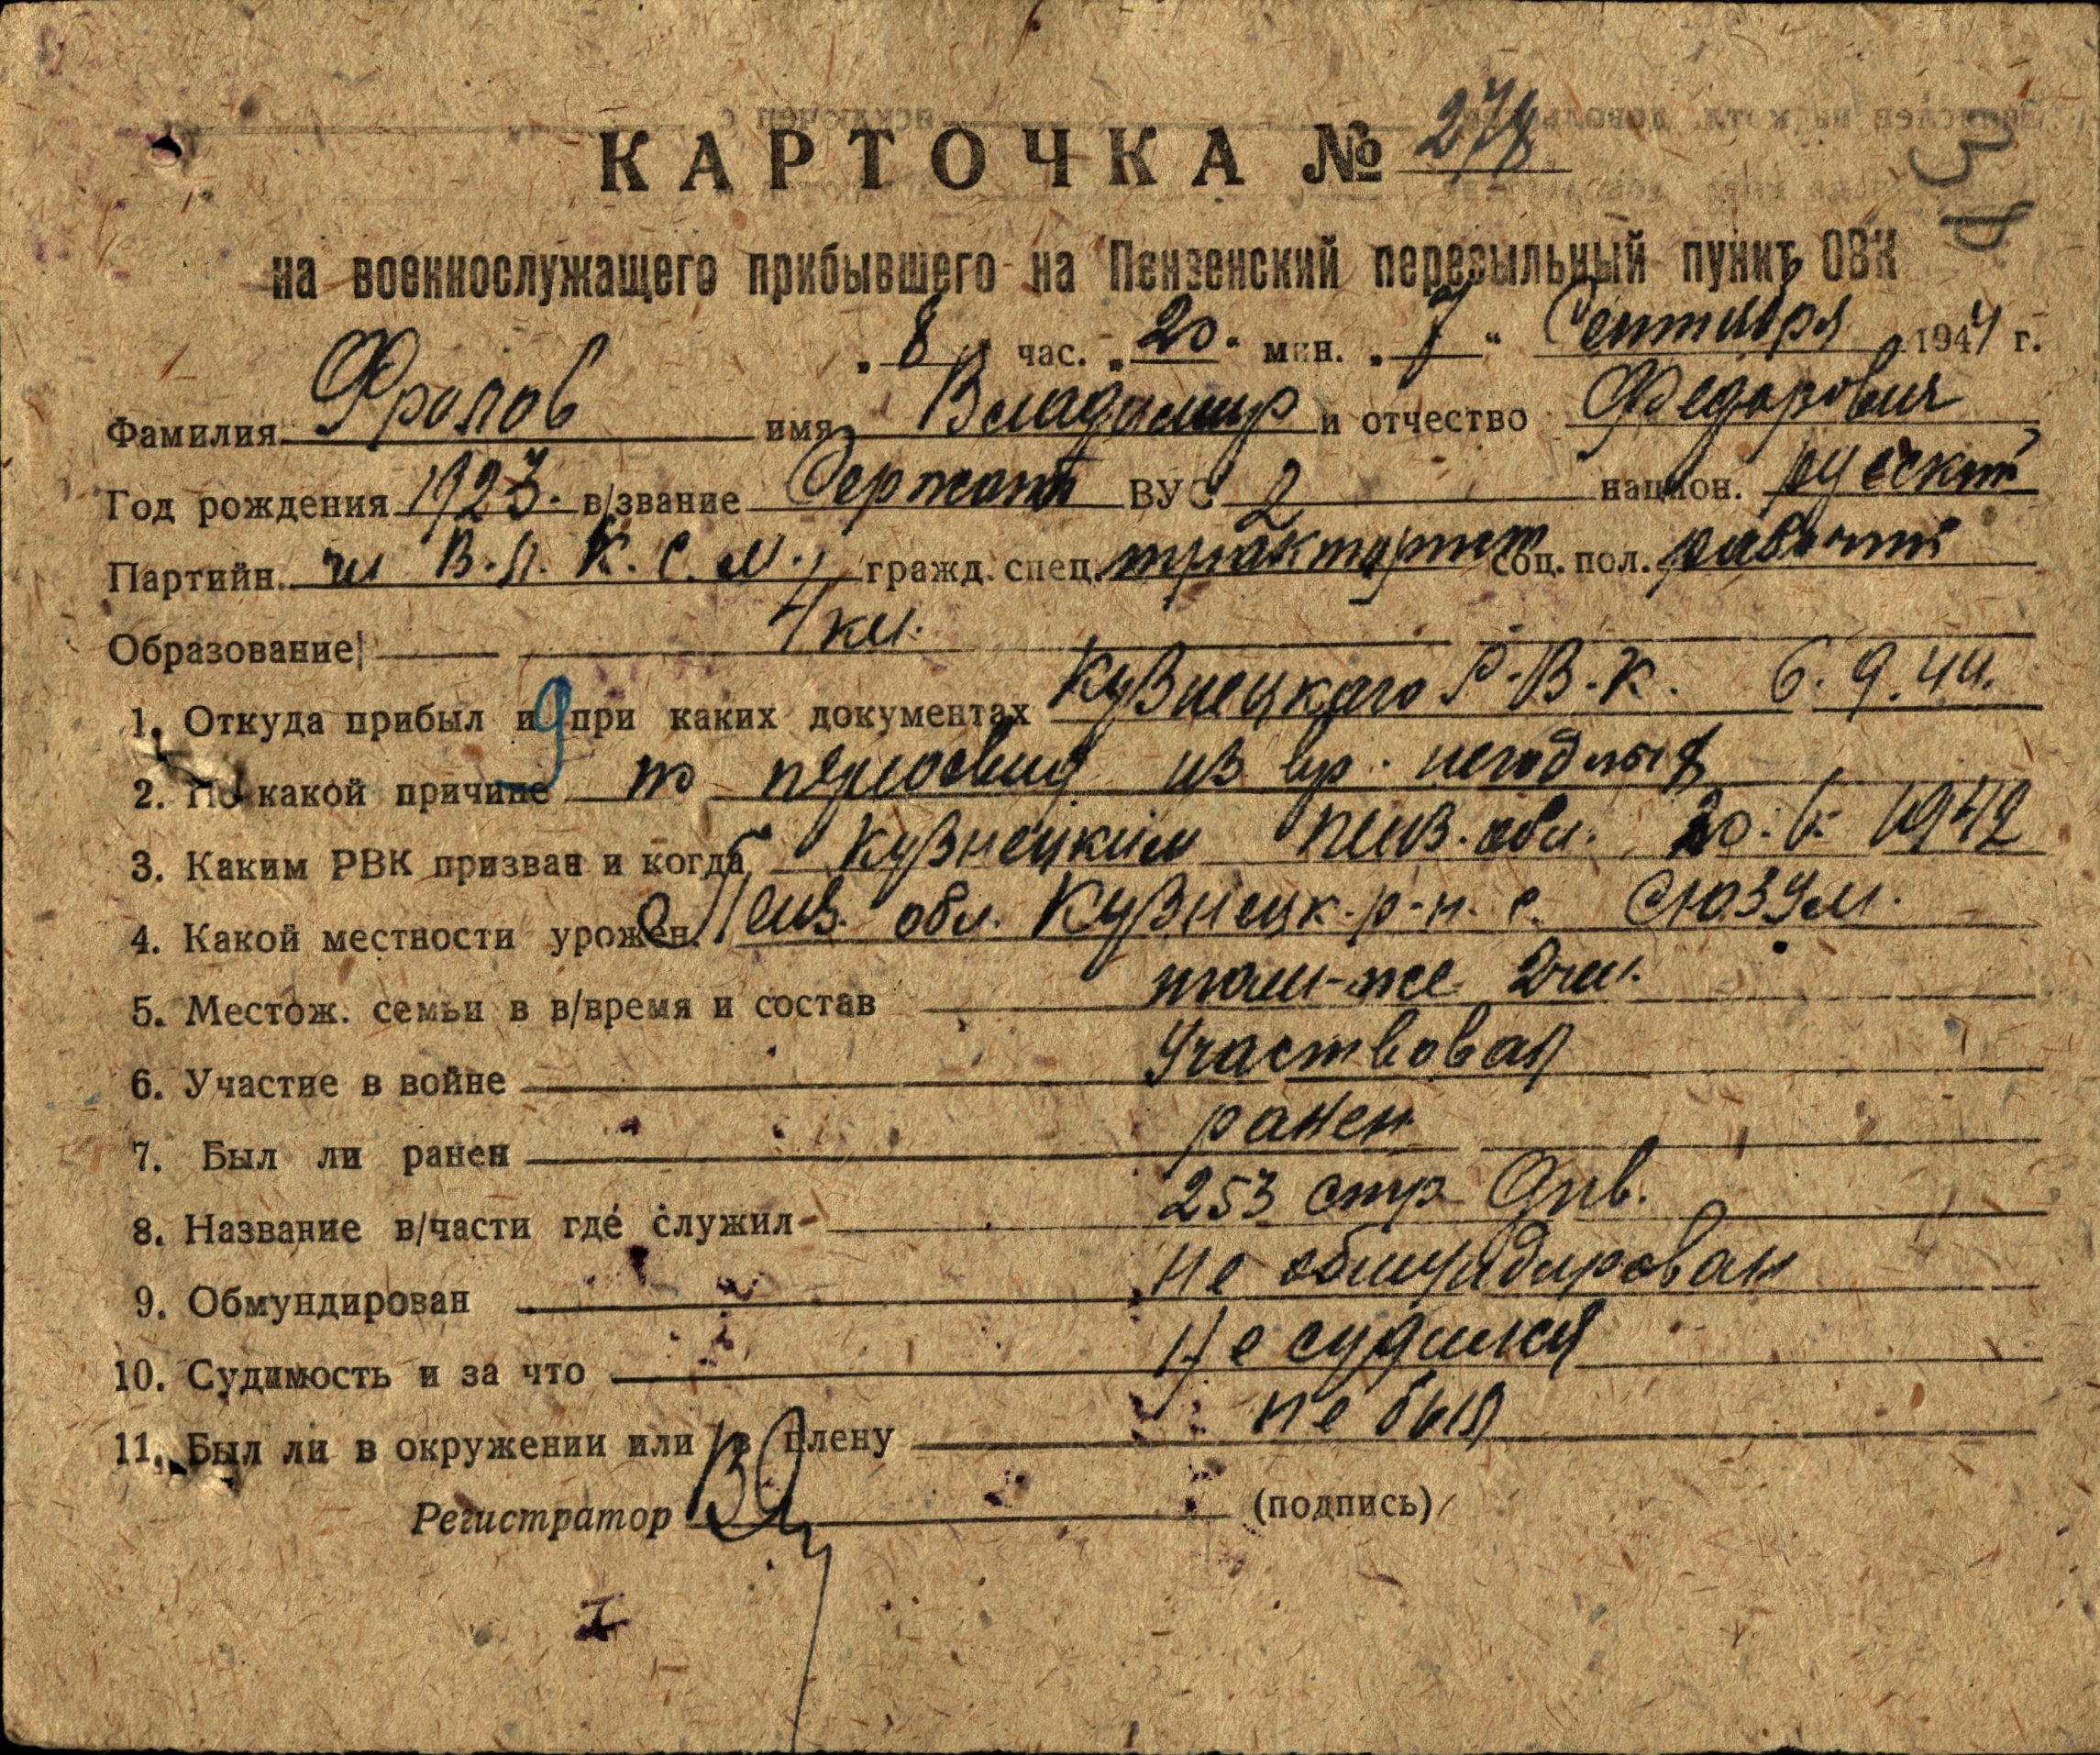 КАРТОЧКА № 278
34
на военнослужащего прибывшего на Пензенский пересыльный пункт ОВК
„ 8 " час. „ 20 " мин. „ 7 " Сентября 1944 г.
Фамилия Фролов имя Владимир и отчество Федорович
Год рождения 1923. в/звание Сержант ВУС 2 национ. русский
Партийн. чл В.Л.К.С.М. гражд. спец. тракторист соц. пол. рабочий
Образование 4 кл.
1. Откуда прибыл и при каких документах Кузнецкого Р.В.К. 6.9.44.
9
2. По какой причине по переосвид из вр. негодных
3. Каким РВК призван и когда Кузнецким Пенз. обл. 20. 6. 1942
4. Какой местности урожен. Пенз. обл. Кузнецк. р-н. с. Сюзюм.
5. Местож. семьи в в/время и состав там-же 2 чел.
6. Участие в войне Участвовал
7. Был ли ранен ранен
8. Название в/части где служил 253 стр див.
9. Обмундирован не обмундирован
10. Судимость и за что Не судился
11. Был ли в окружении или в плену не был
Регистратор (подпись)